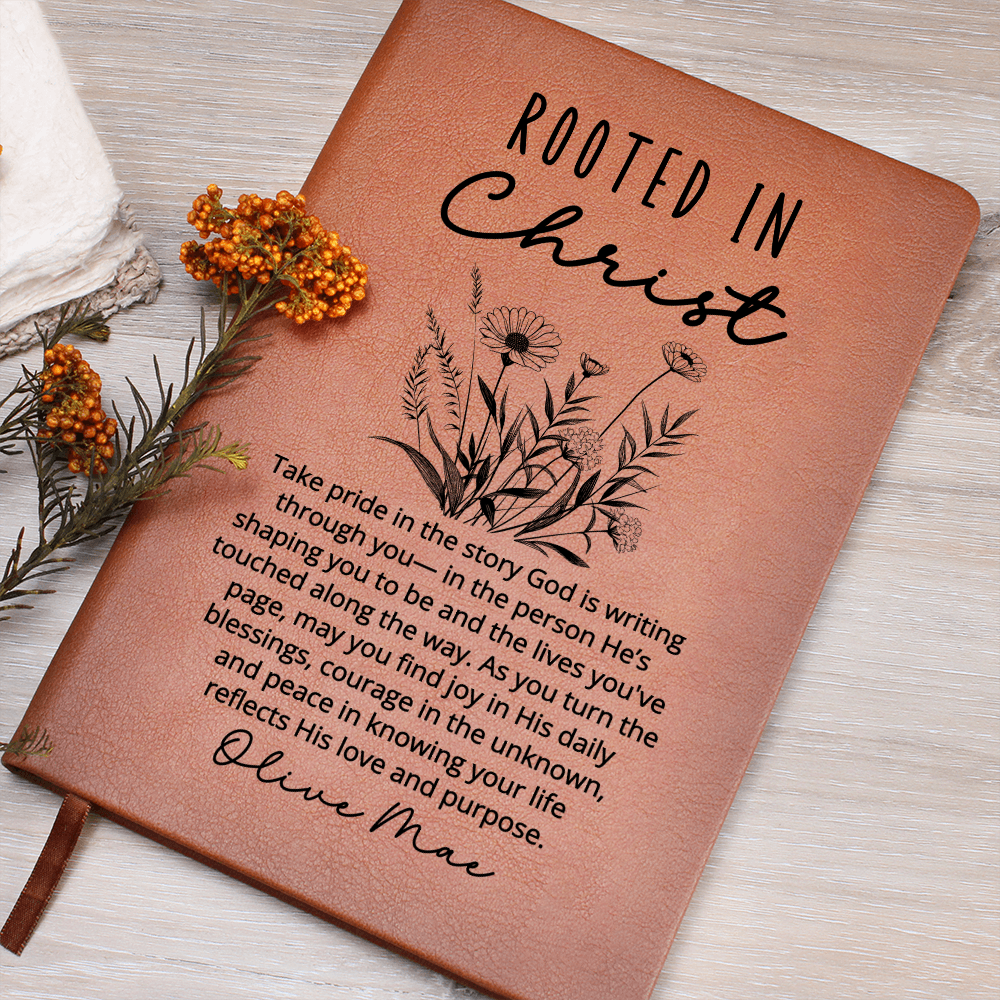 ROOTED IN
Christ
Take pride in the story God is writing
through you— in the person He's
shaping you to be and the lives you've
touched along the way. As you turn the
page, may you find joy in His daily
blessings, courage in the unknown,
and peace in knowing your life
reflects His love and purpose.
Olive Mae